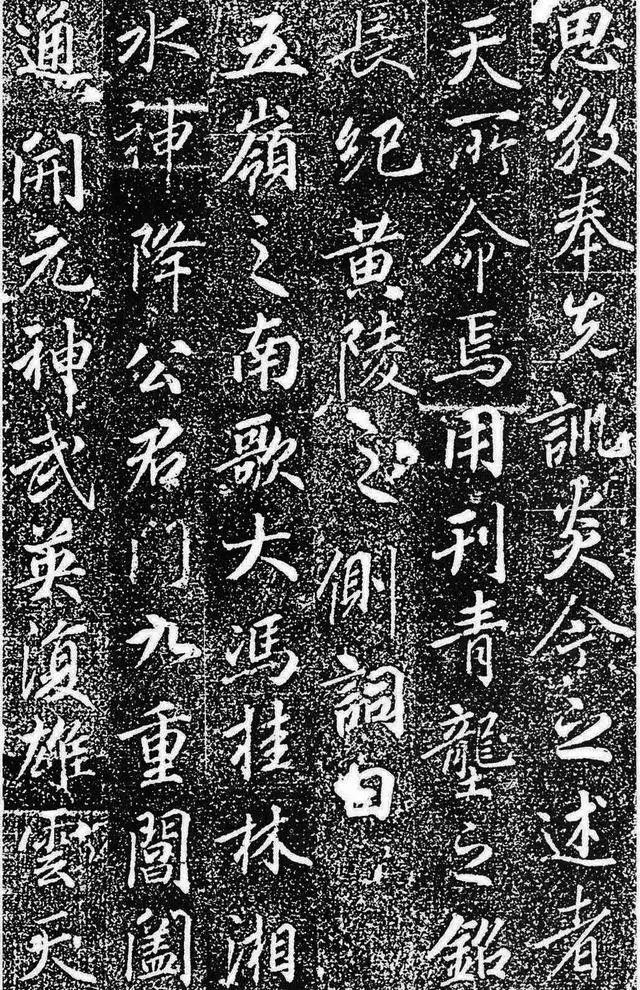 思敬奉先訓炎今之述者
天所命焉用刊青龍之銘
長紀黃陵之側詞曰
五嶺之南歌大馮桂林湘
水神降公君门九重閶闔
通開元神武英復雄雲天